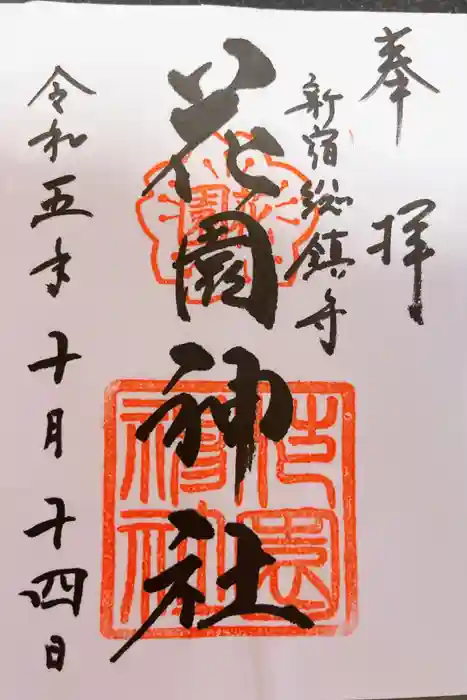 奉拝
新宿総鎮守
花園神社
花園神社
令和五年十月十四日